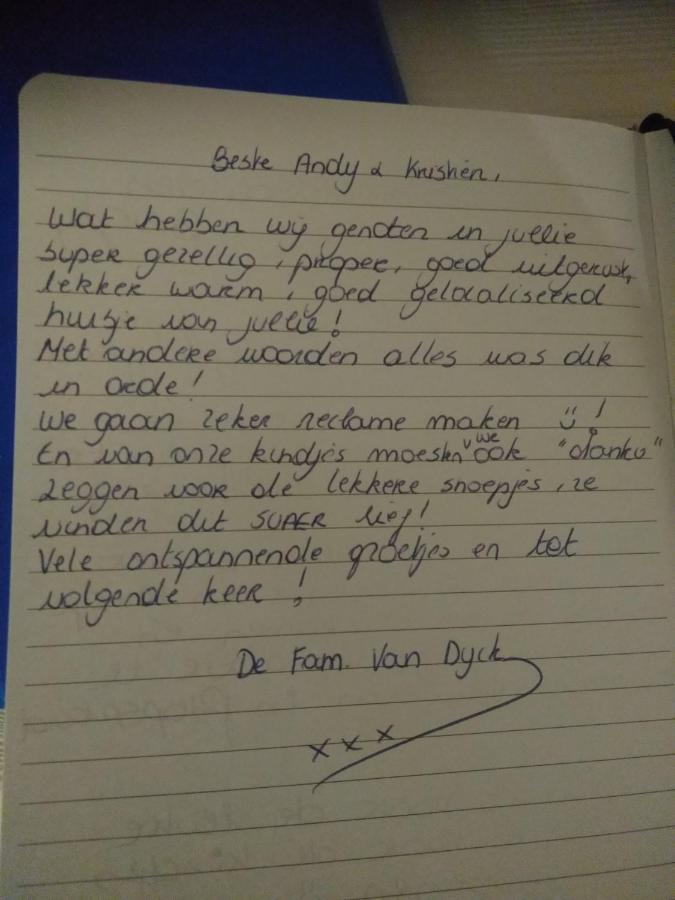 Beste Andy & Krishèn,
Wat hebben wij genoten in jullie
super gezellig, proper, goed uitgerust,
lekker warm, goed gelocaliseerd
huisje van jullie!
Met andere woorden alles was dik
in orde!
We gaan zeker reclame maken ü!
En van onze kindjes moesten we ook "danku"
zeggen voor de lekkere snoepjes, ze
vinden dit SUPER lief!
Vele ontspannende groetjes en tot
volgende keer!
De Fam. Van Dyck
x x x